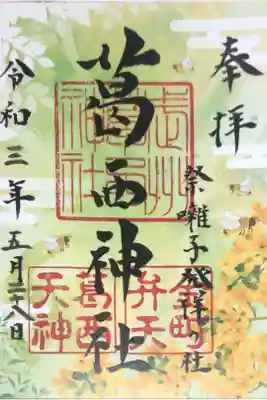 奉拝
祭囃子発祥の社
葛西神社
令和三年五月二十八日
金町
弁天
葛西
天神